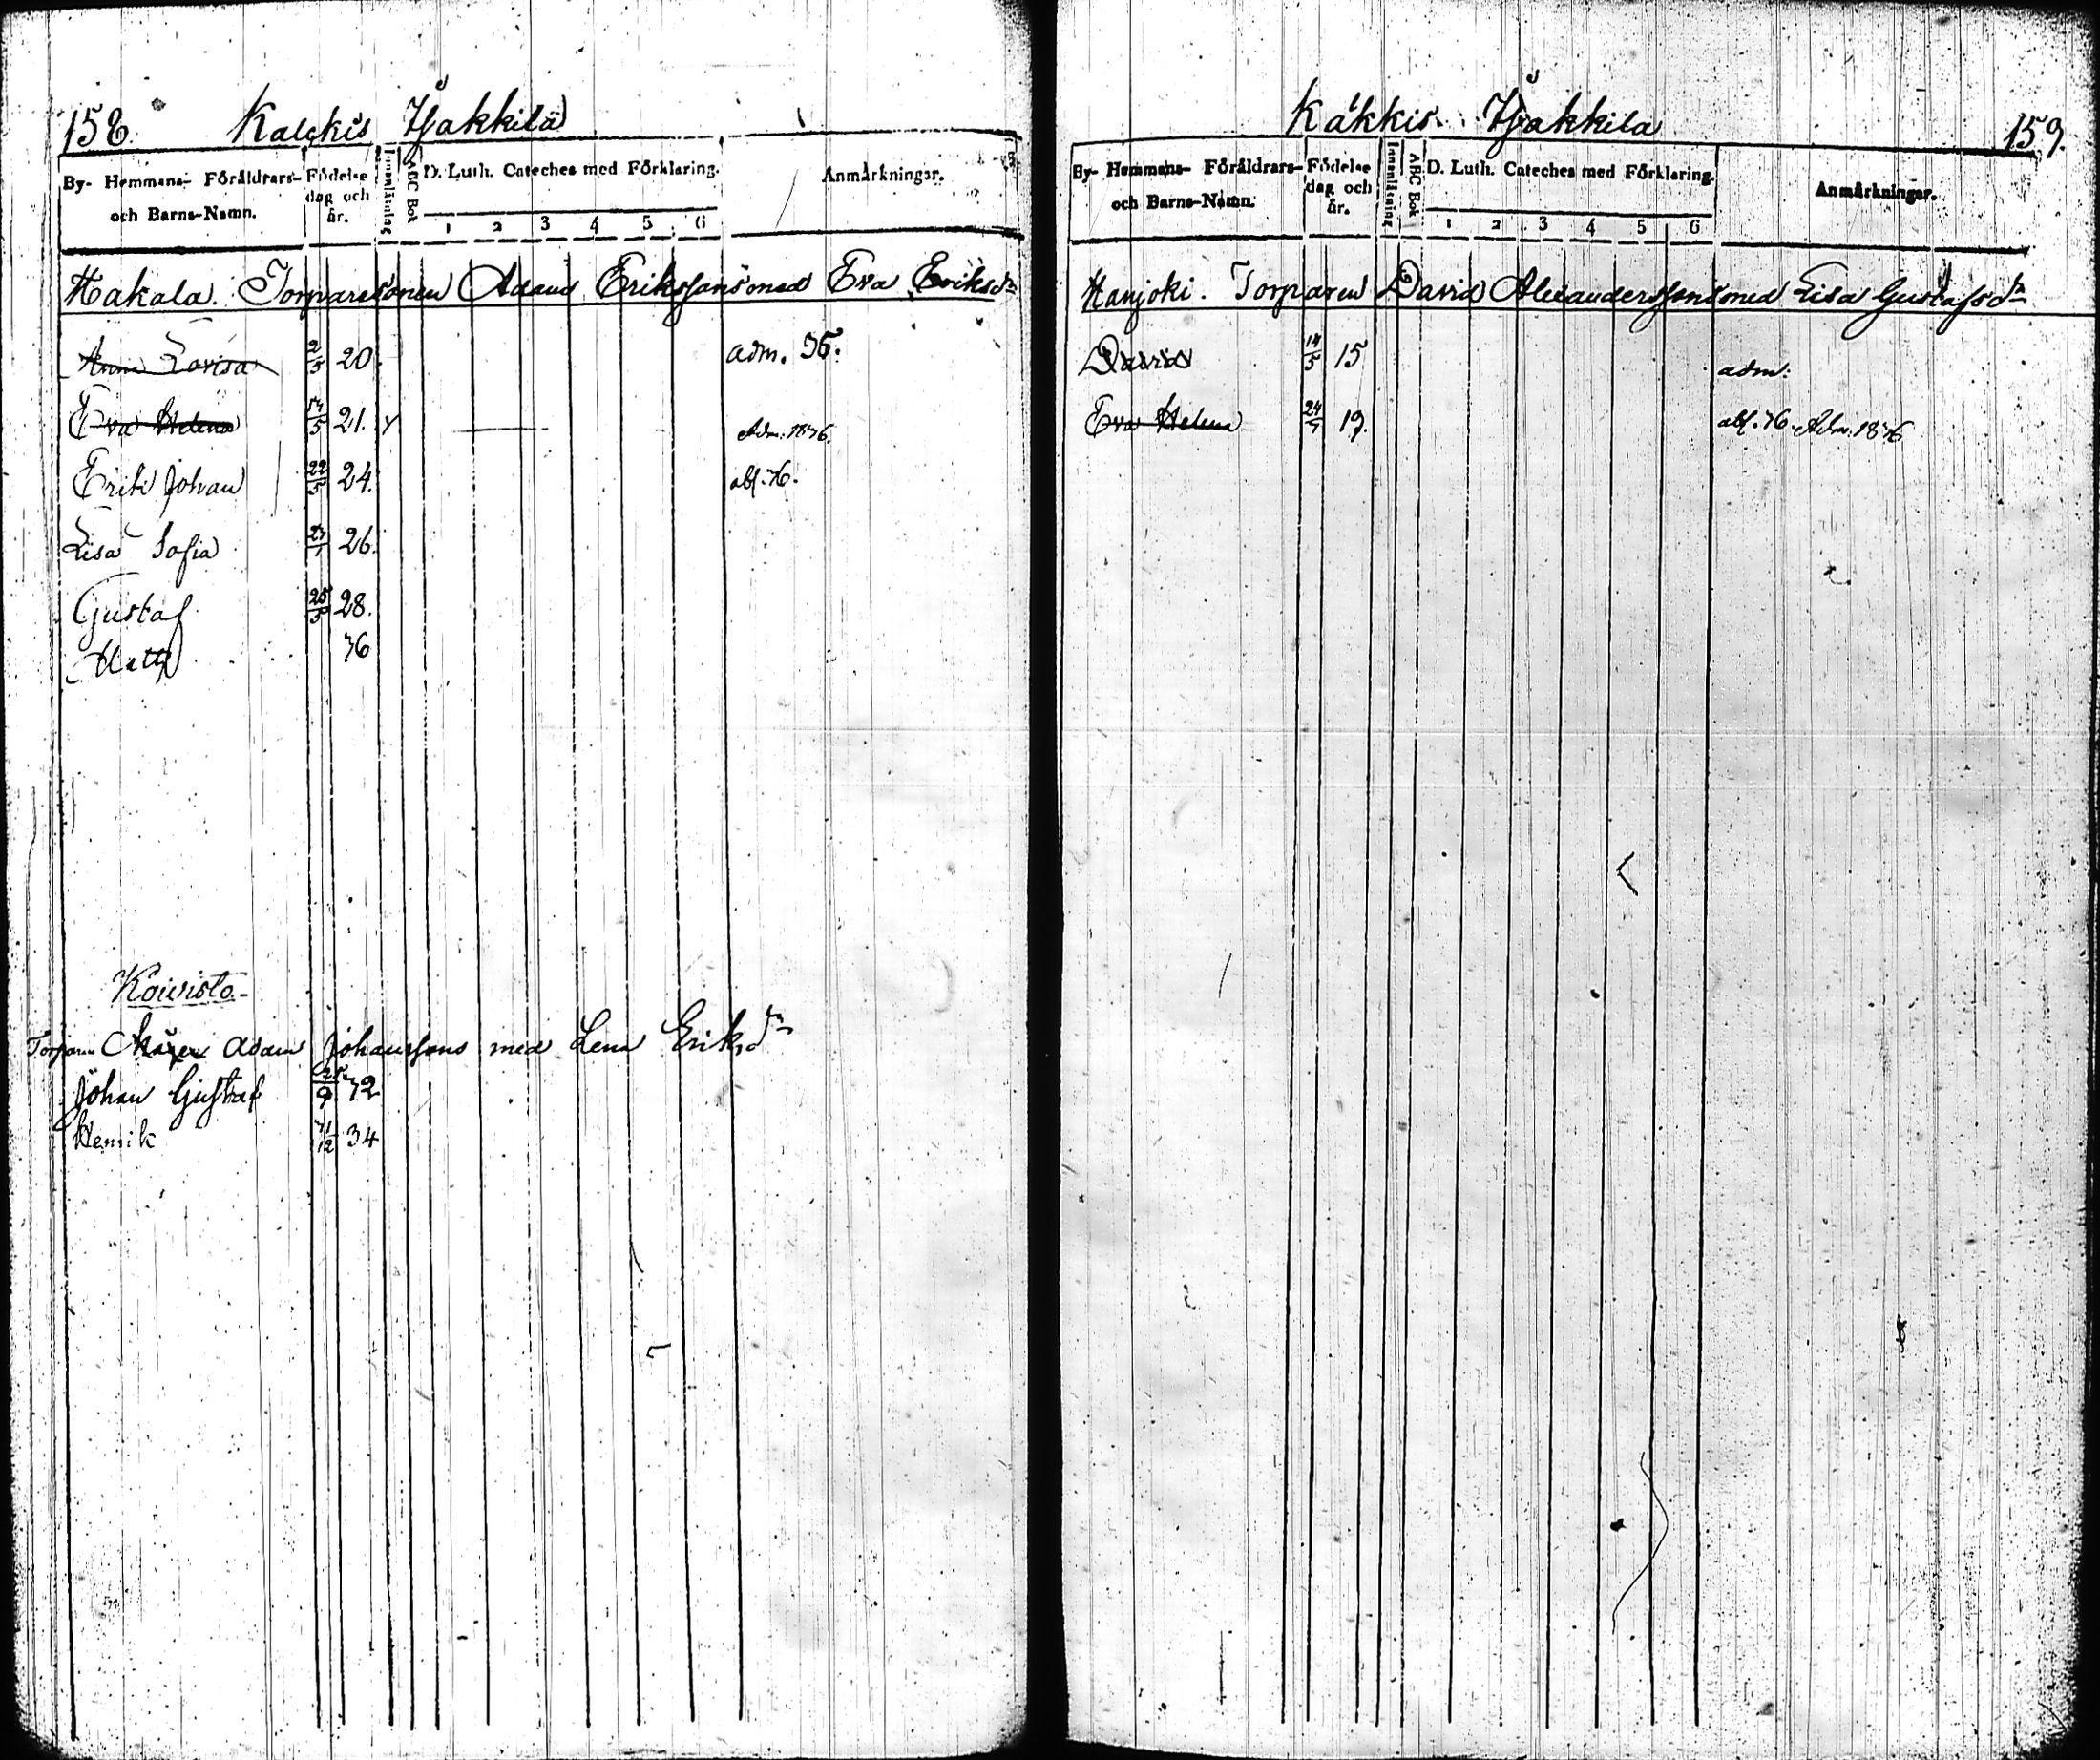 158. Kalckis Tjakkila
By- Hemmans- Föräldrars- och Barns-Namn. Födelse dag och år. Innanläsning ABC Bok D. Luth. Cateches med Förklaring. 1 2 3 4 5 6 Anmärkningar.
Hakala. Torparesonen Adams Erikssons med Eva Eriksdr
Anna Lovisa 2/5 20. adm. 36.
Eva Helena 21. Adm. 1836.
Erik Johan 22/5 24.
Lisa Sofia 26.
Gustaf 28.
Matts 36
Koivisto
Torparen Adam Johanssons med Lena Eriksdr
Johan Gustaf 32
Henrik 34
Käkkis Tjakkila 159.
By- Hemmans- Föräldrars- och Barns-Namn. Födelse dag och år. Innanläsning ABC Bok D. Luth. Cateches med Förklaring. 1 2 3 4 5 6 Anmärkningar.
Hanjoki. Torparen David Alexanderssons med Lisa Gustafsdr
David 14/5 15 adm:
Eva Helena 19. Adm. 1836